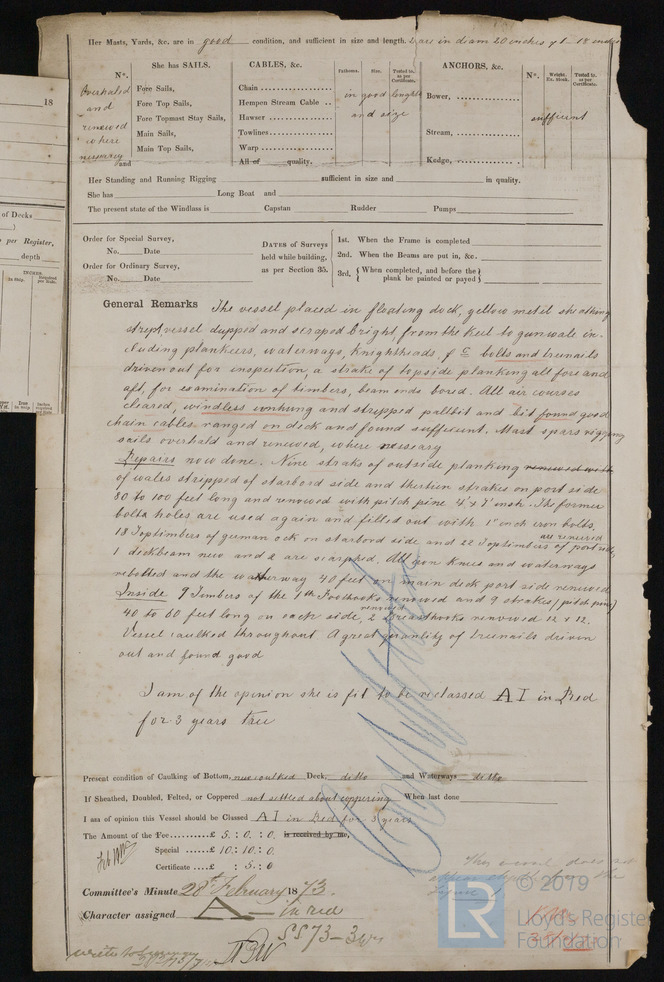 Her Masts, Yards, &c. are in good condition, and sufficient in size and length. are in diam 20 inches
She has SAILS. CABLES, &c. Fathoms. Size. Tested to, as per Certificate. ANCHORS, &c. Nº. Weight. Ex. Stock. Tested to, as per Certificate.
Nº.
Overhaled and renewed where nessesary
Fore Sails,
Fore Top Sails,
Fore Topmast Stay Sails,
Main Sails,
Main Top Sails,
and
Chain
Hempen Stream Cable
Hawser
Towlines
Warp
All of quality.
in good lenght and size
Bower,
Stream,
Kedge,
sufficient
Her Standing and Running Rigging sufficient in size and in quality.
She has Long Boat and
The present state of the Windlass is Capstan Rudder Pumps
18
of Decks
per Register,
depth
Order for Special Survey,
No. Date
Order for Ordinary Survey,
No. Date
DATES of Surveys
held while building,
as per Section 35.
1st. When the Frame is completed
2nd. When the Beams are put in, &c.
3rd. { When completed, and before the plank be painted or payed }
General Remarks The vessel placed in floating dock, yellow metil sheathing
stript, vessel dupped and scraped bright, from the keel to gunwale in-
cluding plankeers, waterways, Knightheads, &c bolts and treenails
driven out for inspection, a strake of topside planking all fore and
aft, for examination of timbers, beam ends bored. All air courses
cleared, windless unhung and stripped pallbit and bit found good
chain cables ranged on deck and found sufficient. Mast spars rigging
sails overhald and renewed, where nessesary
Repairs now done. Nine straks of outside planking renewed with
of wales stripped of starbord side and therteen strakes on port side
80 to 100 feet long and renewed with pitch pine 4" & 7" inch. The former
bolts holes are used again and filled out with 1" inch iron bolts.
18 Toptimbers of german oek on starbord side and 22 Toptimbers of port side are renewed
1 deckbeam new and 2 are scarphed. All iron knees and waterways
rebolted and the waterway 40 feet on main deck port side renewed
Inside 9 Timbers of the 1th Foothooks renewed and 9 strakes (pitch pine)
40 to 60 feet long on each side, renewed 2 Breasthooks renewed 12 x 12.
Vessel caulked throughout A great quantity of Treenails driven
out and found good
I am of the opinion she is fit to be reclassed A I in Red
for 3 years
Present condition of Caulking of Bottom, new caulked Deck, ditto and Waterways ditto
If Sheathed, Doubled, Felted, or Coppered not settled about coppering When last done
I am of opinion this Vessel should be Classed A I in Red for 3 years
The Amount of the Fee £ 5 : 0 : 0. is received by me,
Special £ 10 : 10 : 0.
Certificate £ : 5 : 0
Committee's Minute 28th February 1873.
Character assigned A — in red
SS 73 - 3
© 2019
LR
Lloyd's Register
Foundation